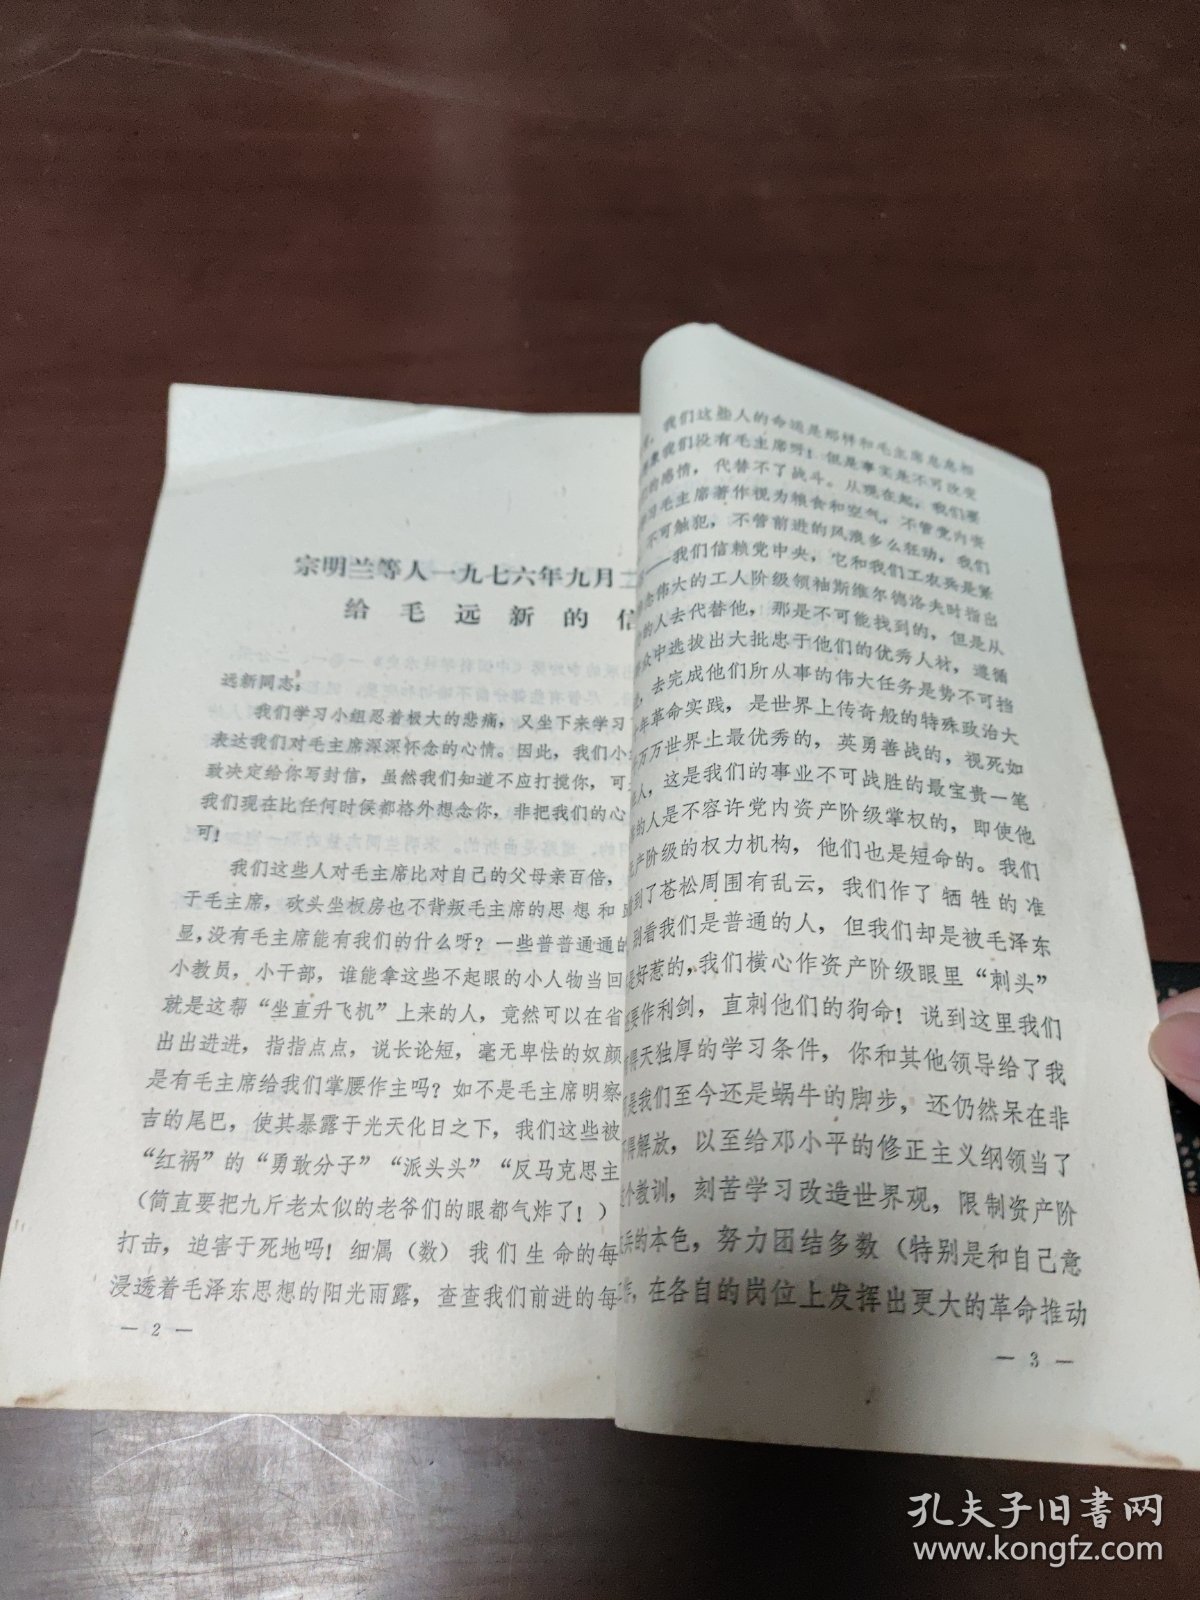 宗明兰等人一九七六年九月二
给毛远新的信
远新同志:
我们学习小组忍着极大的悲痛，又坐下来学习
表达我们对毛主席深深怀念的心情。因此，我们小
致决定给你写封信，虽然我们知道不应打搅你，可
我们现在比任何时侯都格外想念你，非把我们的心
可!
我们这些人对毛主席比对自己的父母亲百倍，
于毛主席，砍头坐板房也不背叛毛主席的思想和
显，没有毛主席能有我们的什么呀？一些普普通通的
小教员，小干部，谁能拿这些不起眼的小人物当回
就是这帮“坐直升飞机”上来的人，竟然可以在省
出出进进，指指点点，说长论短，毫无卑怯的奴颜
是有毛主席给我们掌腰作主吗？如不是毛主席明察
吉的尾巴，使其暴露于光天化日之下，我们这些被
“红祸”的“勇敢分子”“派头头”“反马克思主
（简直要把九斤老太似的老爷们的眼都气炸了！）
打击，迫害于死地吗！细属（数）我们生命的每
浸透着毛泽东思想的阳光雨露，查查我们前进的每
— 2 —
我们这些人的命运是那样和毛主席息息相
我们没有毛主席呀！但是事实是不可改变
的感情，代替不了战斗。从现在起，我们要
习毛主席著作视为粮食和空气，不管党内资
不可触犯，不管前进的风浪多么狂动，我们
——我们信赖党中央，它和我们工农兵是紧
念伟大的工人阶级领袖斯维尔德洛夫时指出
的人去代替他，那是不可能找到的，但是从
众中选拔出大批忠于他们的优秀人材，遵循
，去完成他们所从事的伟大任务是势不可挡
年革命实践，是世界上传奇般的特殊政治大
万万世界上最优秀的，英勇善战的，视死如
人，这是我们的事业不可战胜的最宝贵一笔
的人是不容许党内资产阶级掌权的，即使他
产阶级的权力机构，他们也是短命的。我们
到了苍松周围有乱云，我们作了牺牲的准
别看我们是普通的人，但我们却是被毛泽东
是好惹的，我们横心作资产阶级眼里“刺头”
要作利剑，直刺他们的狗命！说到这里我们
得天独厚的学习条件，你和其他领导给了我
是我们至今还是蜗牛的脚步，还仍然呆在非
不得解放，以至给邓小平的修正主义纲领当了
个教训，刻苦学习改造世界观，限制资产阶
兵的本色，努力团结多数（特别是和自己意
，在各自的岗位上发挥出更大的革命推动
— 3 —
孔夫子旧书网
www.kongfz.com